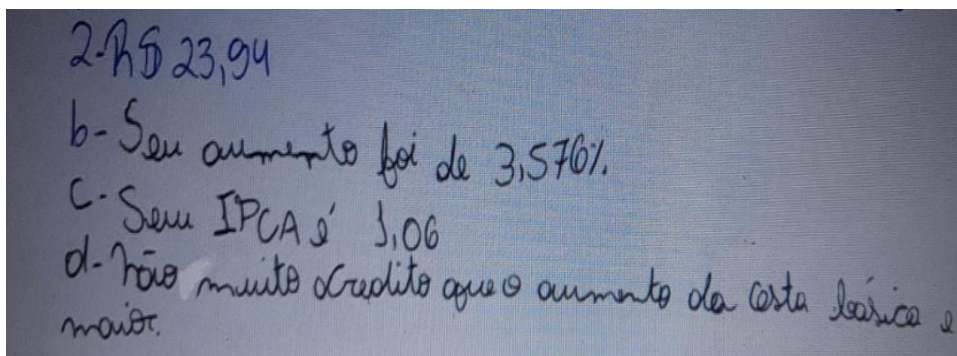 2-R$ 23,94
b- Seu aumento foi de 3,576%.
C- Seu IPCA é 1,06
d- Não muito acredito que o aumento da cesta básica e
maior.